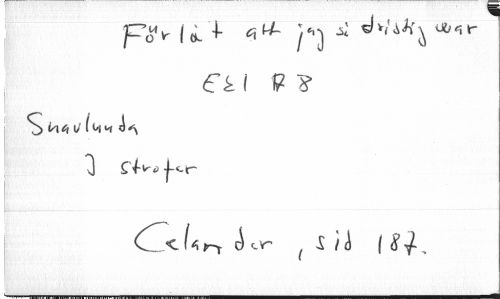 Förlåt att jag si dristig war
EEI 178
Snavlunda
I strofer
Celander, sid 187.